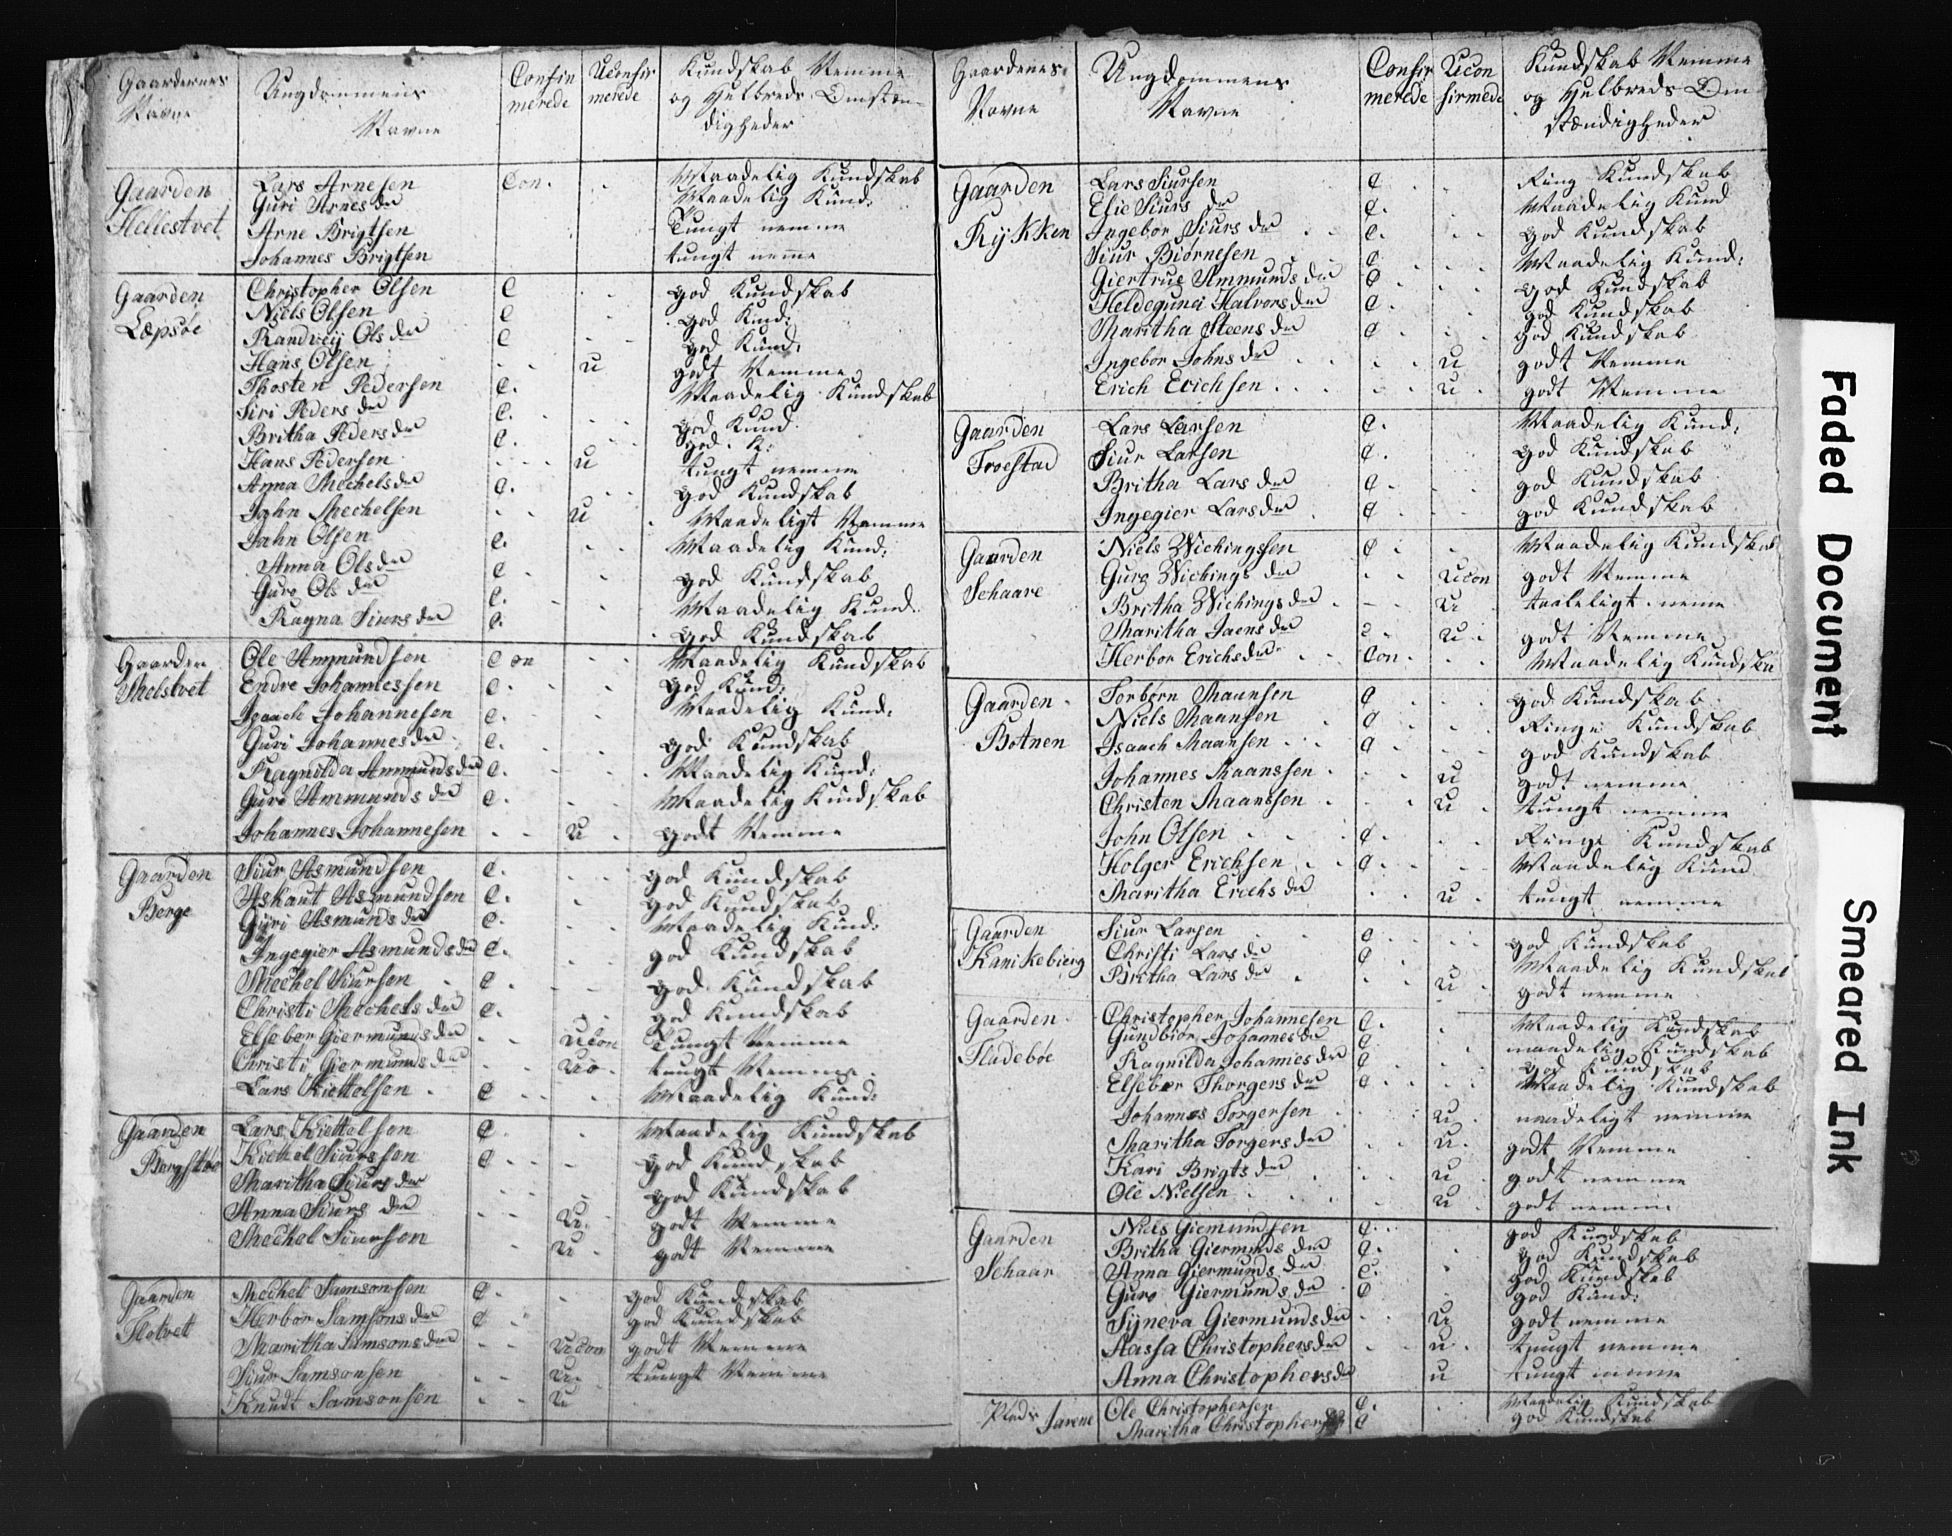 Gaardernes Navne
Ungdommens Navne
Confirmerede
Uconfirmerede
Kundskab Nemme og Helbreds Omstændigheder
Gaarden Hellestvet
Lars Arnesen Con. Maadelig Kundskab
Guri Arnesdr Maadelig Kund:
Arne Brigtsen Tungt nemme
Johannes Brigtsen tungt nemme
Gaarden Læpsøe
Christopher Olsen C god Kundskab
Niels Olsen C god Kund:
Randveij Olsdr C god Kund:
Hans Olsen U godt Nemme
Thosten Pedersen C. Maadelig Kundskab
Siri Pedersdr C. god Kund
Britha Pedersdr C. god K:
Hans Pedersen U tungt nemme
Anna Mechelsdr C. god Kundskab
John Mechelsen U Maadeligt Nemme
John Olsen C. Maadelig Kund:
Anna Olsdr C god Kundskab
Guro Olsdr C. Maadelig Kund.
Ragna Siursdr C. god Kundskab
Gaarden Melstvet
Ole Ammundsen Con Maadelig Kundskab
Endre Johannessen C. god Kund:
Isaach Johannesen C. Maadelig Kund:
Guri Johannesdr C. god Kundskab
Ragnilda Ammundsdr C. Maadelig Kund:
Guro Ammundsdr C. Maadelig Kundskab
Johannes Johannesen U godt Nemme
Gaarden Berge
Siur Asmundsen C. god Kundskab
Askaut Asmundsen C. god Kundskab
Guri Asmundsdr C. Maadelig Kund:
Ingegier Asmundsdr C. god Kundskab
Mechel Siursen C. god Kundskab
Christi Mechelsdr C. god Kundskab
Elsebør Giermundsdr Ucon Tungt Nemme
Christi Giermundsdr Uo. tungt Nemme
Lars Kiettelsen C Maadelig Kund:
Gaarden
Lars Kiettelsen C. Maadelig Kundskab
Kiethel Siurssen C god Kundskab
Maritha Siursdr god Kundskab
Anna Siursdr U. godt Nemme
Mechel Siursen U godt Nemme
Gaarden Flotvet
Mechel Samsonsen C. god Kundskab
Herbor Samsonsdr C god Kundskab
Maritha Samsonsdr Ucon godt Nemme
Siur Samsonsen U. tungt Nemme
Knudt Samsonsen U
Gaardenes Navne
Ungdommens Navne
Confirmerede
Uconfirmede
Kundskab Nemme og Helbreds Omstændigheder
Gaarden Rykken
Lars Siursen C Ring Kundskab
Elie Siursdr C. Maadelig Kund
Ingebor Siursdr C. god Kundskab
Siur Biørnesen C Maadelig Kund:
Giertrue Ammundsdr C god Kundskab
Heldegunci Halvorsdr C. god Kundskab
Maritha Steensdr C god Kundskab
Ingebor Johnsdr U godt Nemme
Erich Erichsen U. godt Nemme
Gaarden Troestad
Lars Larsen C. Maadelig Kund:
Siur Larsen C. god Kundskab
Britha Larsdr C. god Kundskab
Ingegier Larsdr C god Kundskab
Gaarden Schaare
Niels Wichingssen C Maadelig Kundskab
Guro Wichingsdr Ucon godt Nemme
Britha Wichingsdr U taaleligt neme
Maritha Jaensdr U. godt Nemme
Herbor Erichsdr Con. Maadelig Kundska
Gaarden Botnen
Torbørn Maansen C god Kundskab
Niels Maansen C Ringe Kundskab
Isaach Maansen C god Kundskab
Johannes Maanssen U godt nemme
Christen Maanssen U tungt nemme
John Olsen C. Ringe Kundskab
Holger Erichsen C. Maadelig Kund
Maritha Erichsdr U tungt nemme
Gaarden Kanikebierg
Siur Larsen C god Kundskab
Christi Larsdr C Maadelig Kundskab
Britha Larsdr U godt nemme
Gaarden Fladebøe
Christopher Johannesen C. Maadelig Kundskab
Gundbiør Johannesdr C maadelig Kundskab
Ragnilda Johannesdr C god Kundskab
Elsebør Thorgersdr C Maadelig Kundskab
Johannes Torgersen U. maadeligt nemme
Maritha Torgersdr U. godt Nemme
Kari Brigtsdr U godt nemme
Ole Nielsen U godt nemme
Gaarden Schaar
Niels Giemundsen C. god Kundskab
Britha Giermundsdr C. god Kundskab
Anna Giermundsdr C. god Kundskab
Guro Giermundsdr C god Kund:
Syneva Giermundsdr U godt nemme
Aassa Christophersdr U. tungt nemme
Anna Christophersdr U tungt nemme
Plads Jarene
Ole Christophersen C. Maadelig Kundskab
Maritha Christophersdr C god Kundskab
Faded Document
Smeared Ink